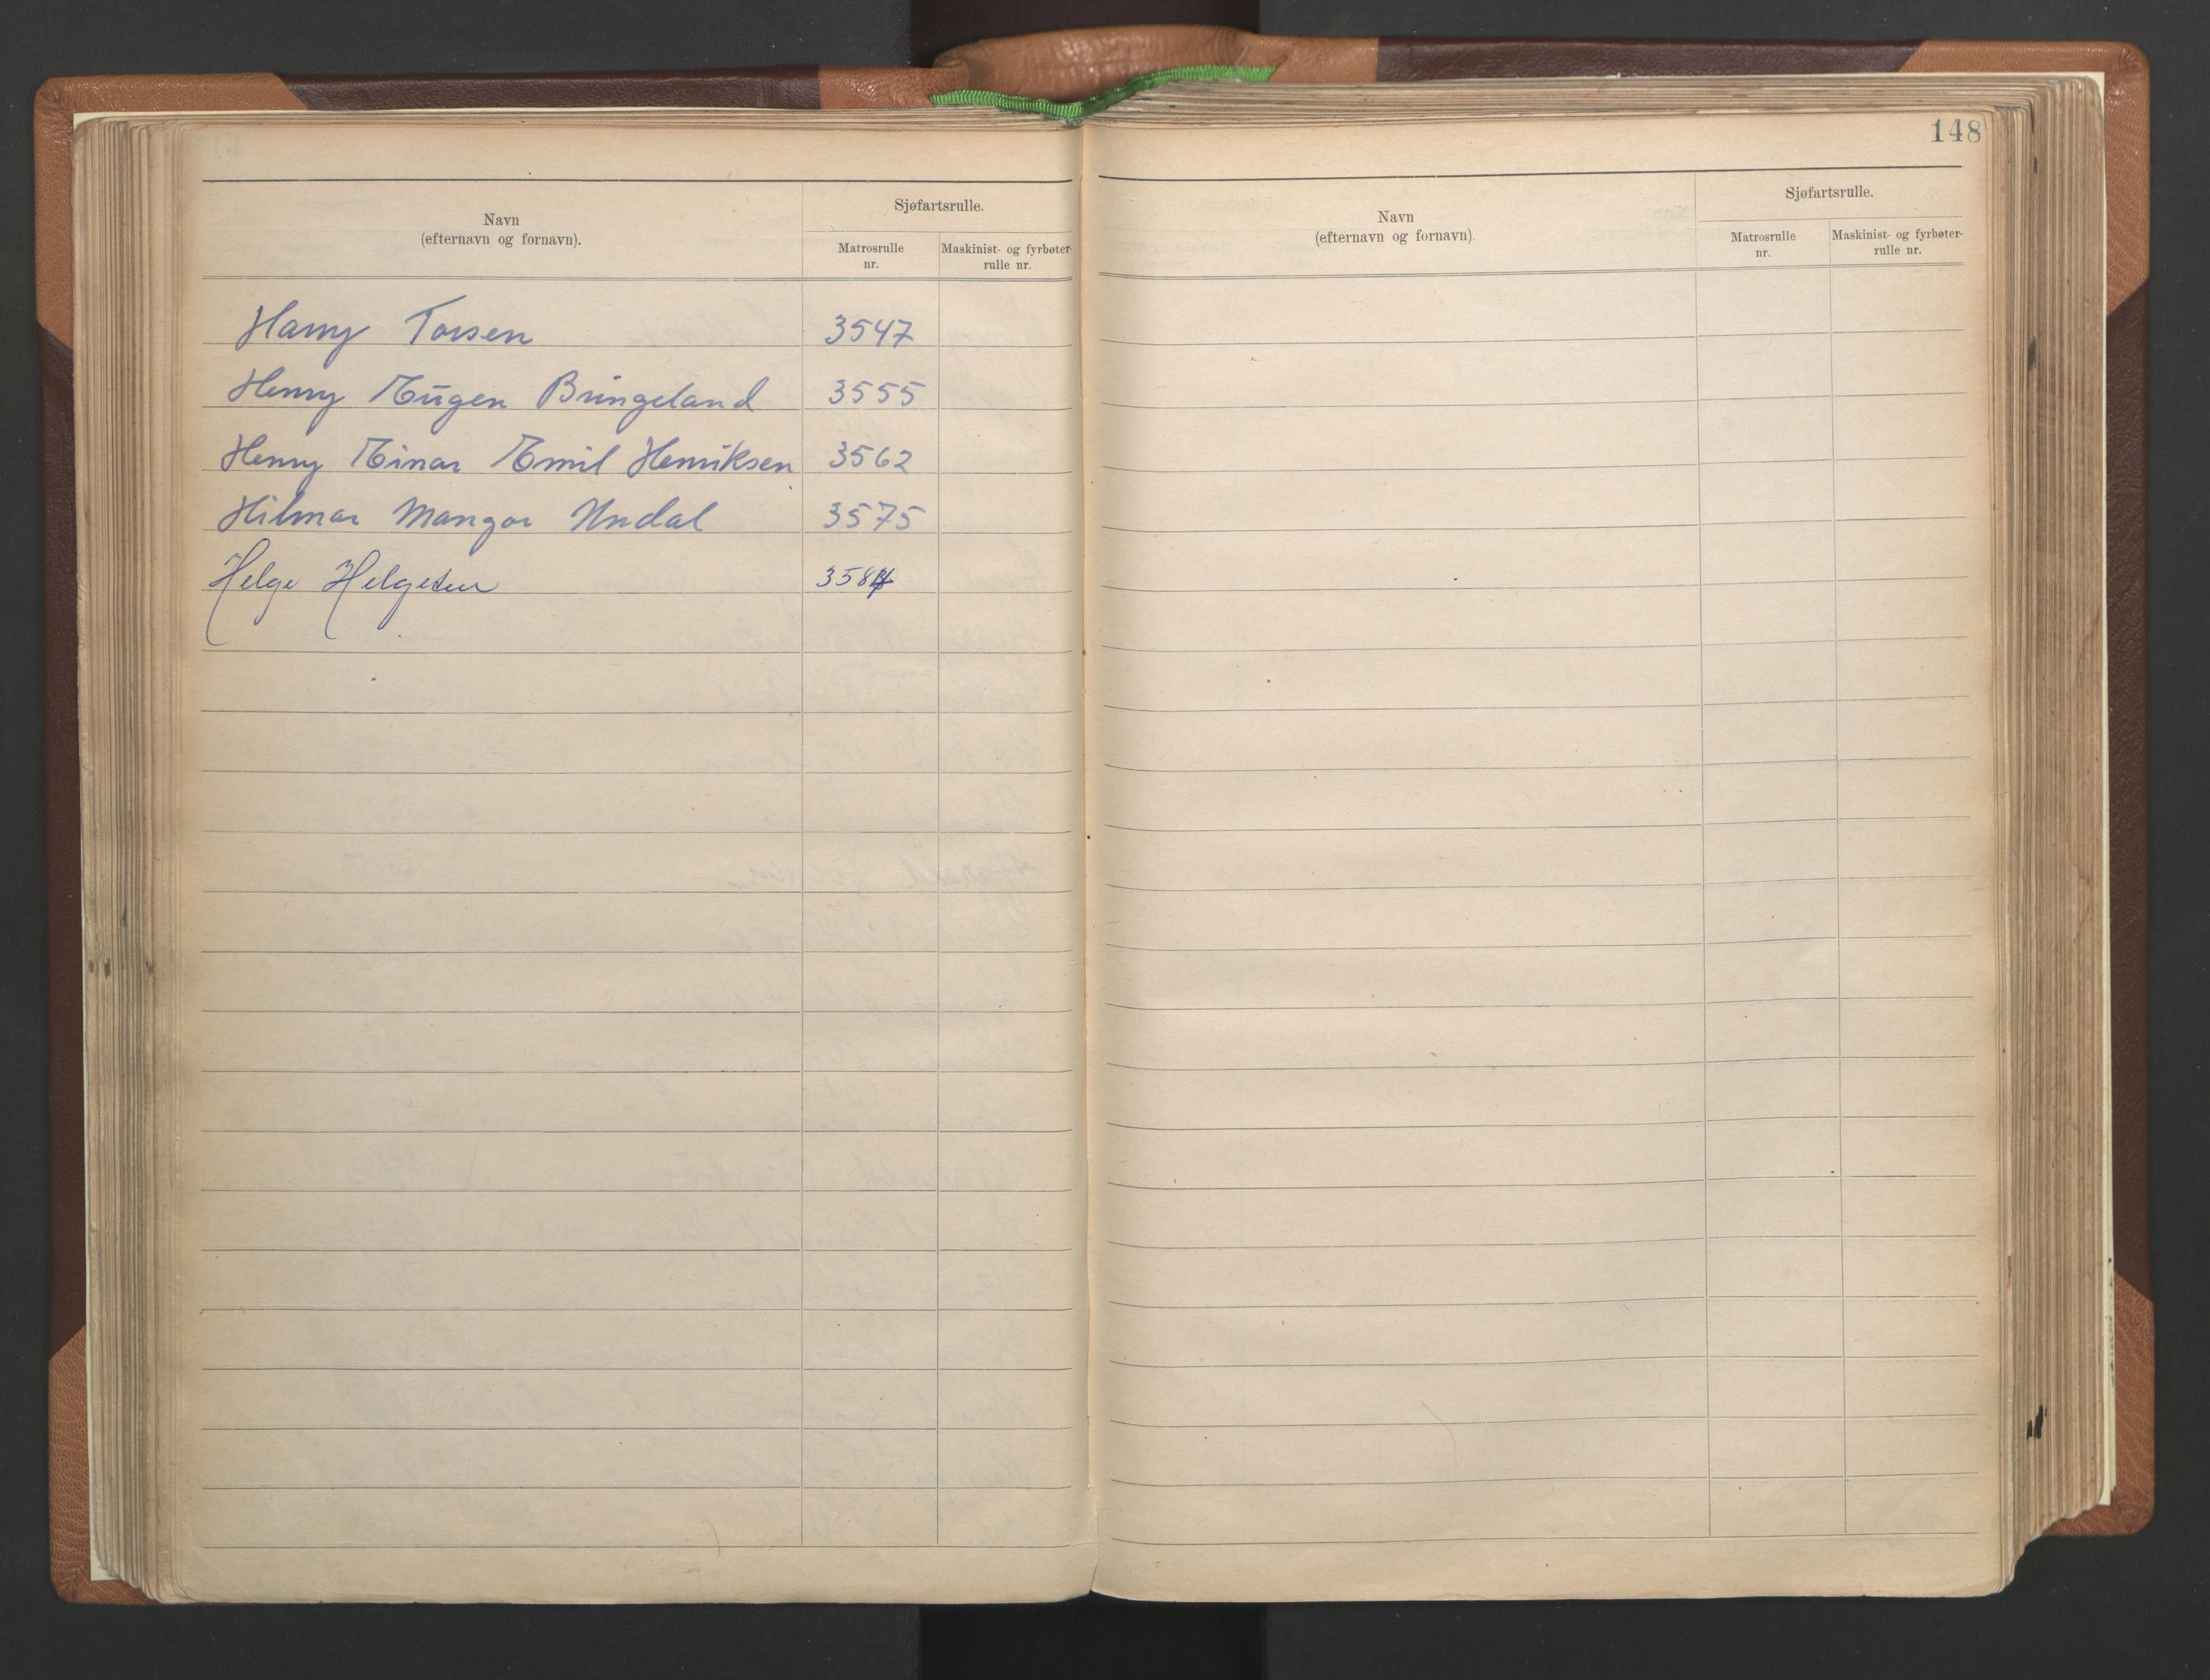 148
Navn
(efternavn og fornavn).
Sjøfartsrulle.
Matrosrulle
nr.
Maskinist- og fyrbøter-
rulle nr.
Harry Torsen 3547
Henry Eugen Bringeland 3555
Henry Einar Emil Henriksen 3562
Hilmar Mangor Undal 3575
Helge Helgesen 3584
Navn
(efternavn og fornavn).
Sjøfartsrulle.
Matrosrulle
nr.
Maskinist- og fyrbøter-
rulle nr.